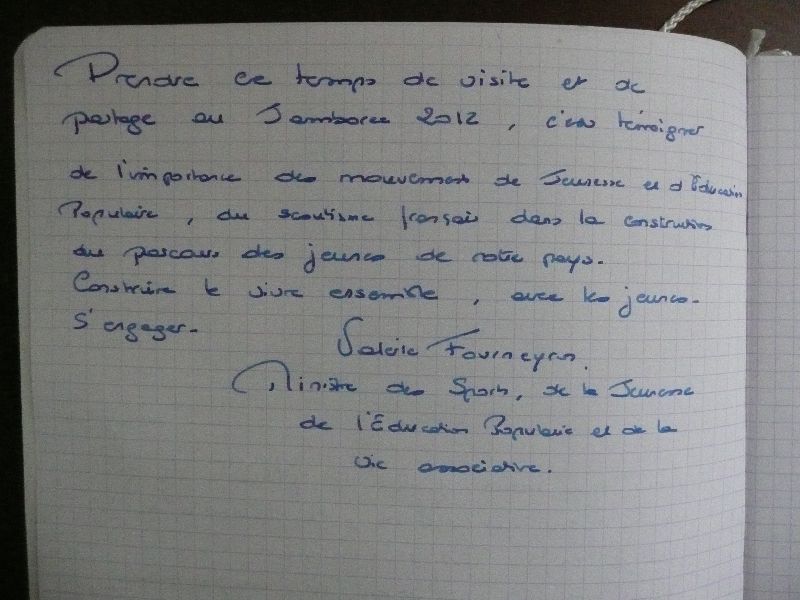 Prendre ce temps de visite et de
partage au Jamboree 2012, c'est témoigner
de l'importance des mouvements de Jeunesse et d'Éducation
Populaire, du scoutisme français dans la construction
du parcours des jeunes de notre pays.
Construire le vivre ensemble, avec les jeunes.
S'engager.
Valérie Fourneyron.
Ministre des Sports, de la Jeunesse
de l'Éducation Populaire et de la
vie associative.